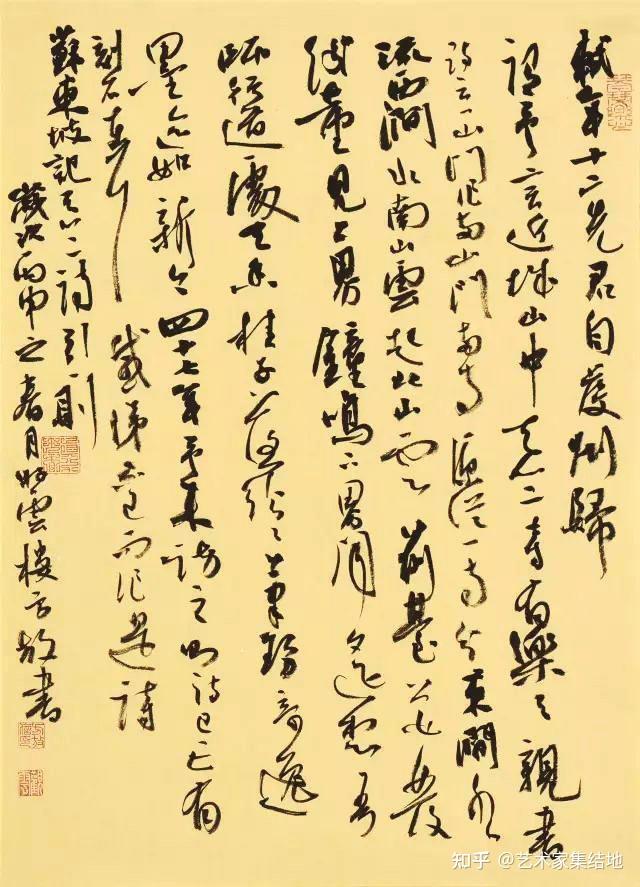 軾年十二先君自虔州歸
謂予言近城山中天竺寺有樂天親書
詩云一山門作兩山門兩寺原從一寺分東澗水
流西澗水南山雲起北山雲前臺花發
後臺見上界鐘鳴下界聞遙想吾
師行道處天香桂子落紛紛筆勢奇逸
墨迹如新今四十七年予來訪之則詩已亡有
刻石在耳 感涕不已而作是詩
蘇東坡記天竺詩引一則
歲次丙申之春月 雲樓方放書
知乎 @艺术家集结地